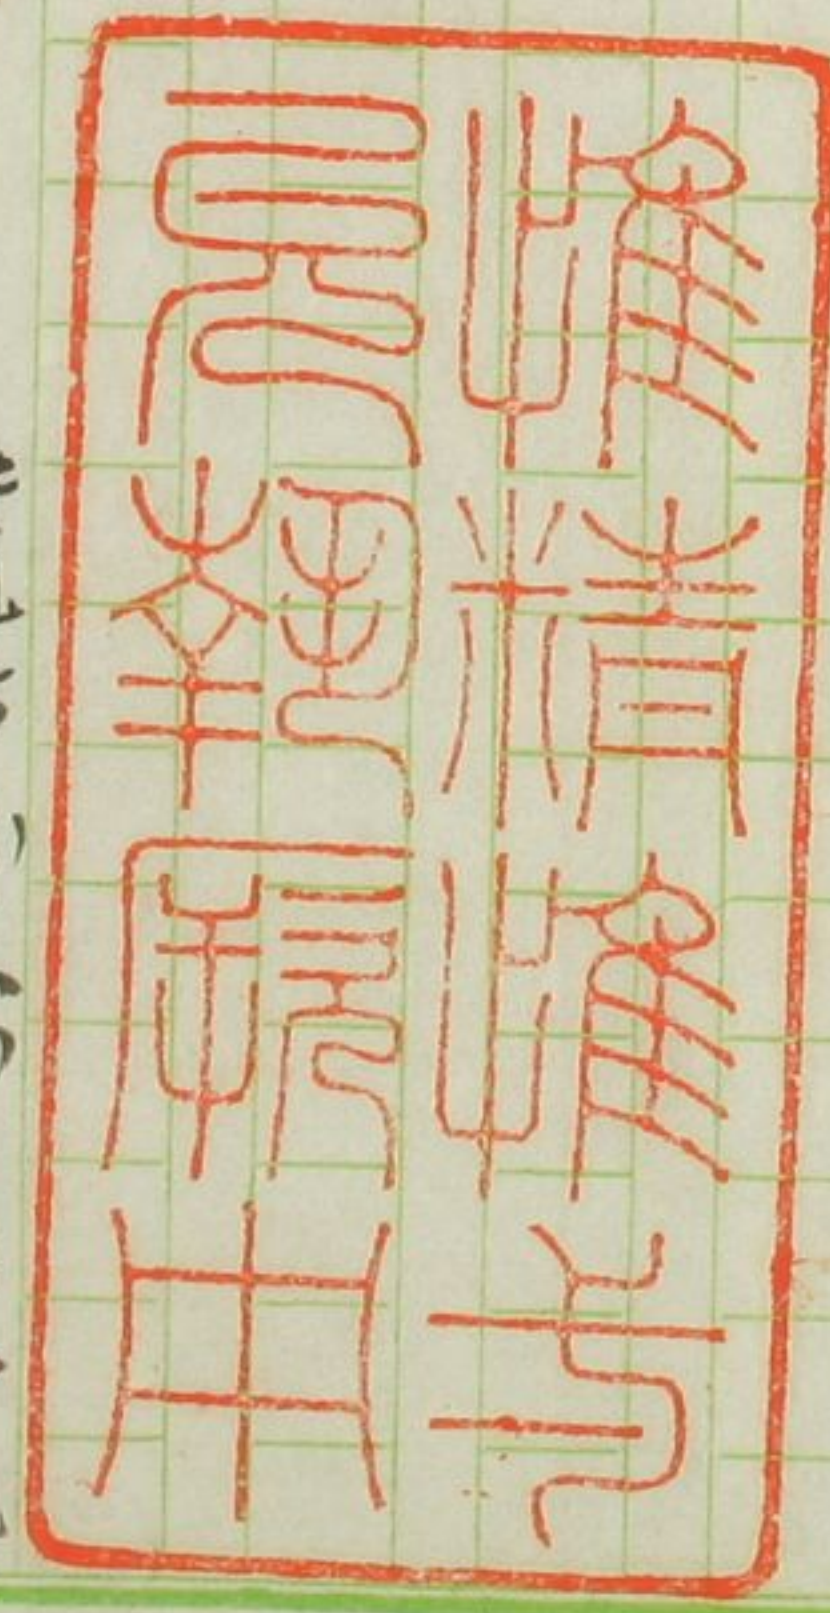 惟精惟弌
允執厥中